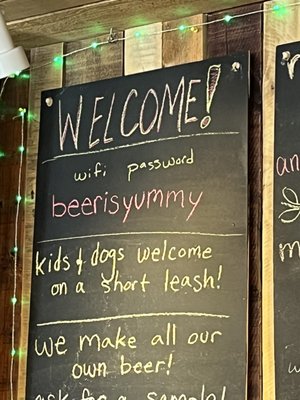 WELCOME!
wifi password
beerisyummy
kids & dogs welcome
on a short leash!
we make all our
own beer!
ask for a sample!